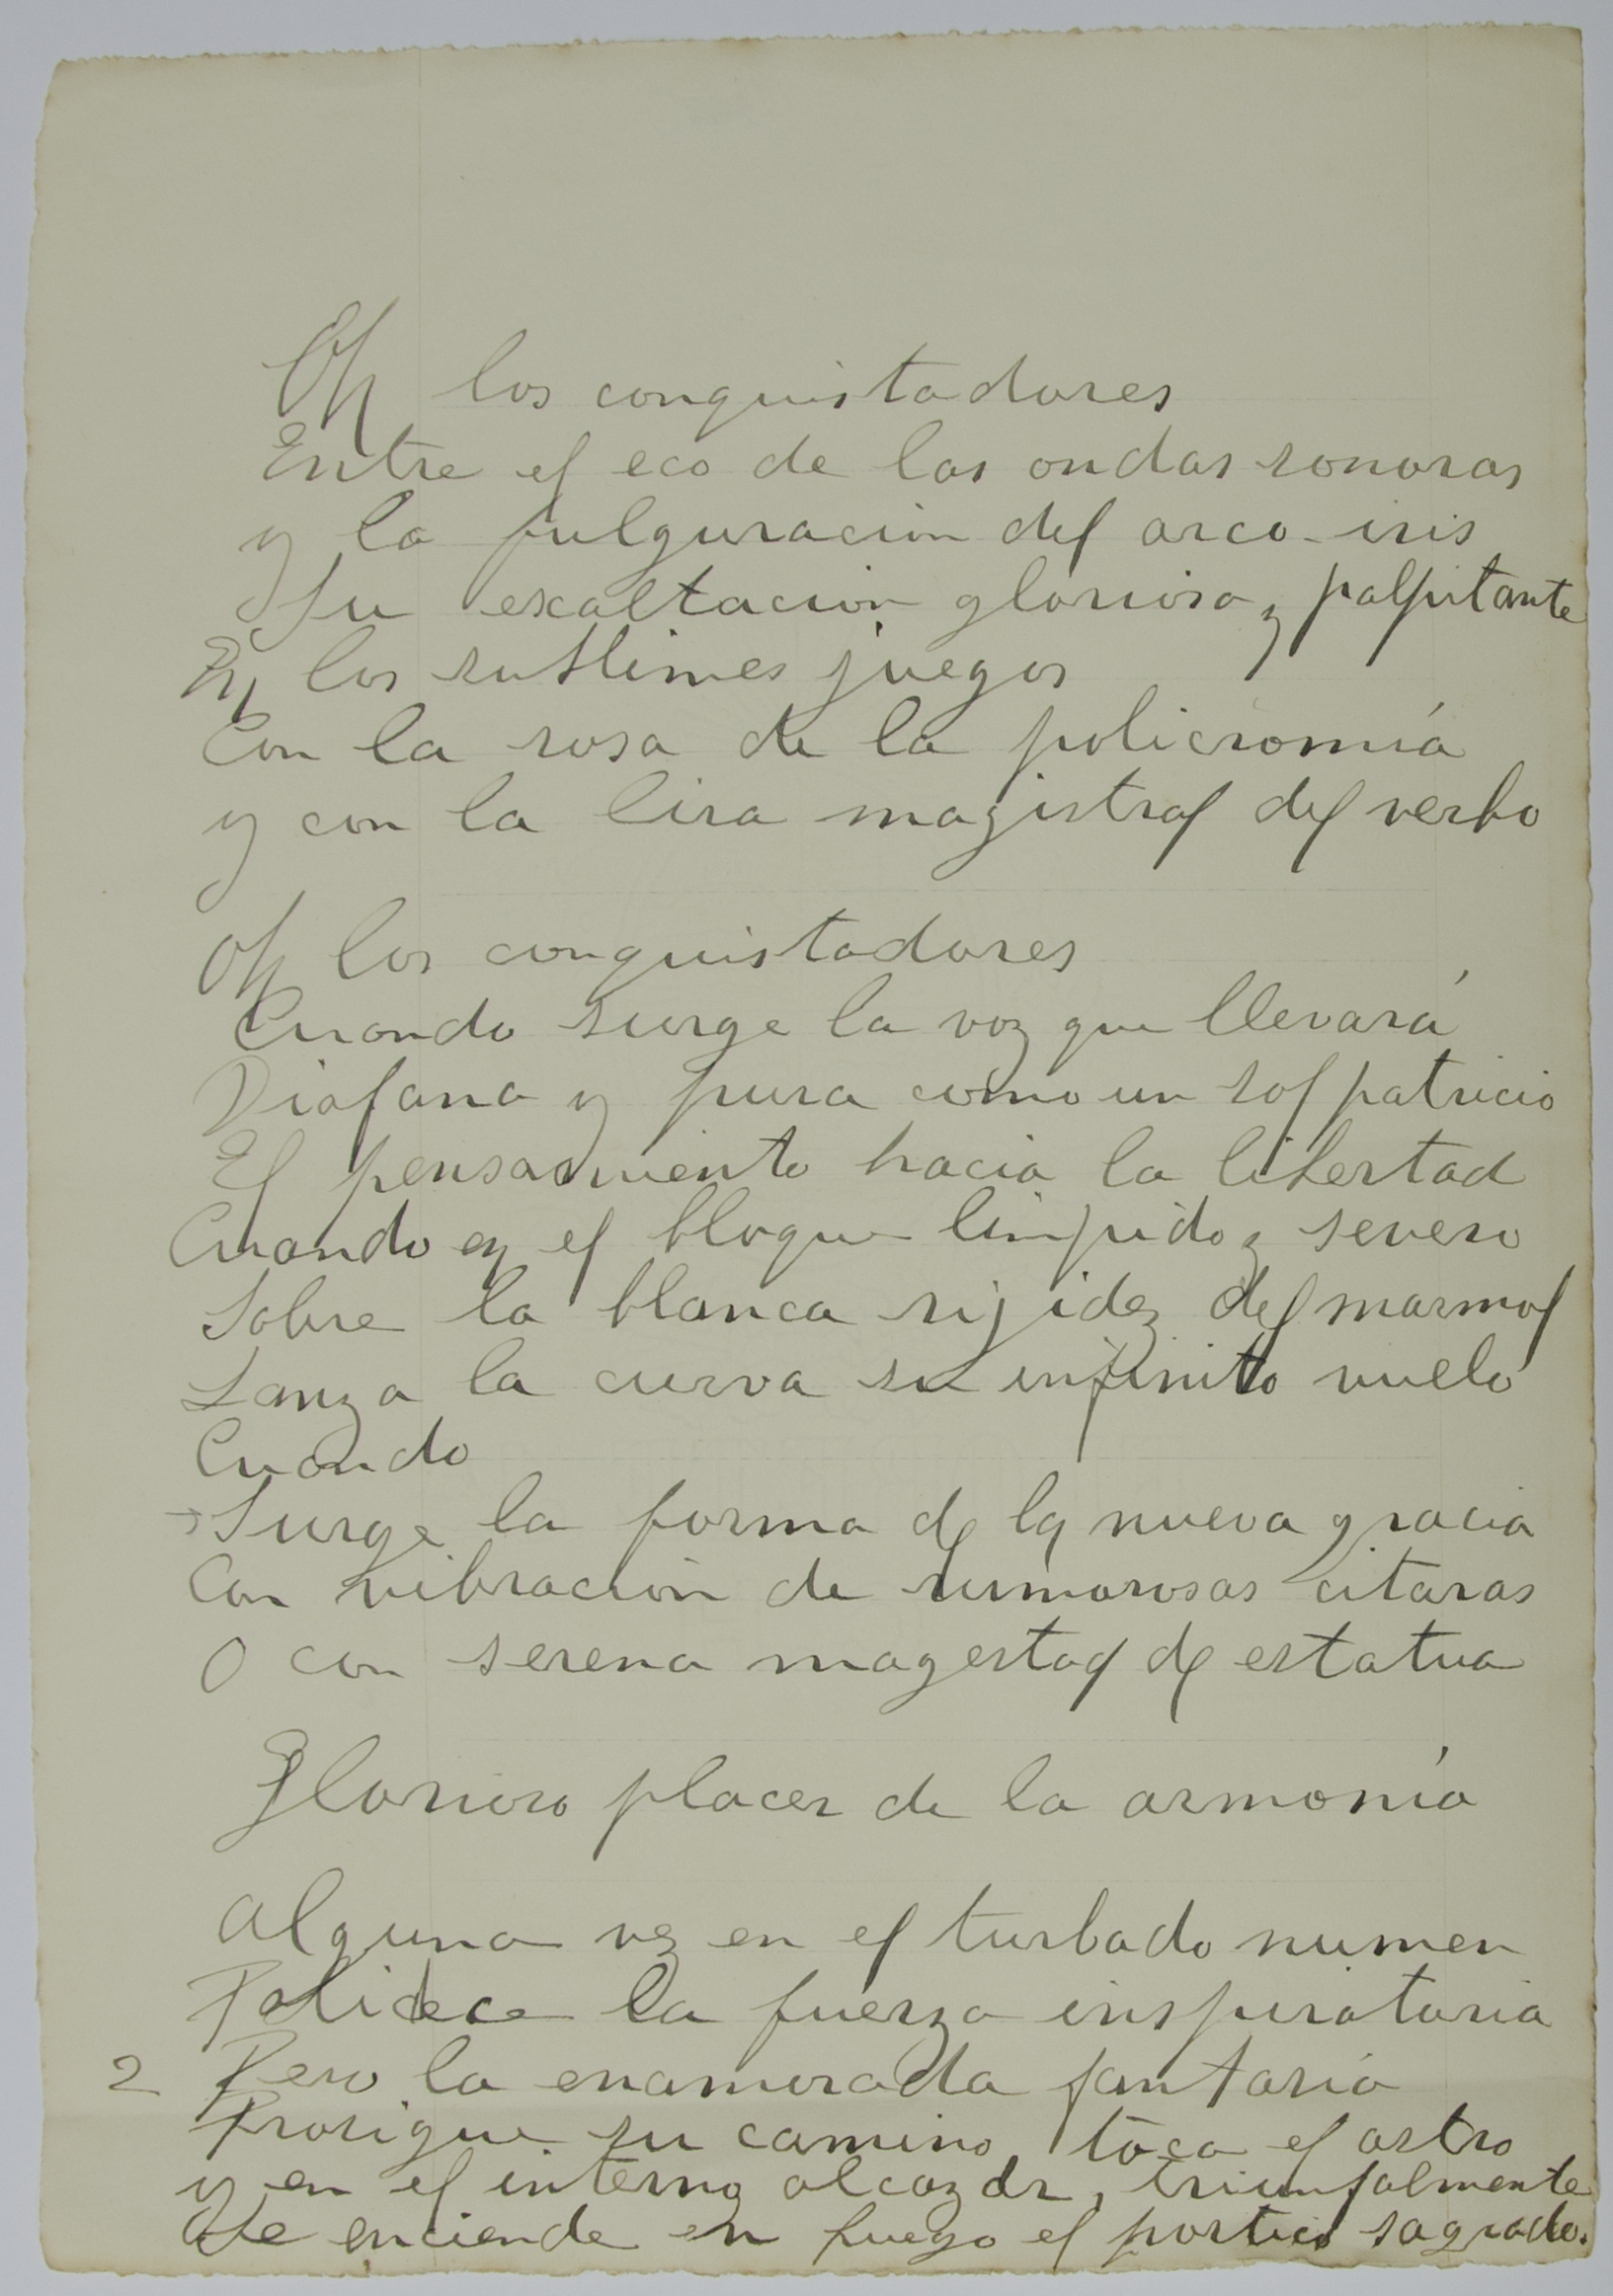 Oh los conquistadores
Entre el eco de las ondas sonoras
y la fulguracion del arco-iris
Su exaltacion gloriosa, palpitante
En los sublimes juegos
Con la rosa de la policromía
y con la lira magistral del verbo
Oh los conquistadores
Cuando surge la voz que llevará
Diafana y pura como un sol patricio
El pensamiento hacia la libertad
Cuando en el bloque limpido, severo
Sobre la blanca rijidez del marmol
Lanza la curva su infinito vuelo
Cuando
Surge la forma de la nueva gracia
Con vibracion de rumorosas citaras
O con serena magestad de estatua
Glorioso placer de la armonía
Alguna vez en el turbado numen
Palidece la fuerza inspiratoria
2 Pero la enamorada fantasia
Prosigue su camino, toca el astro
y en el interno alcazar, triunfalmente
Se enciende en fuego el portico sagrado.